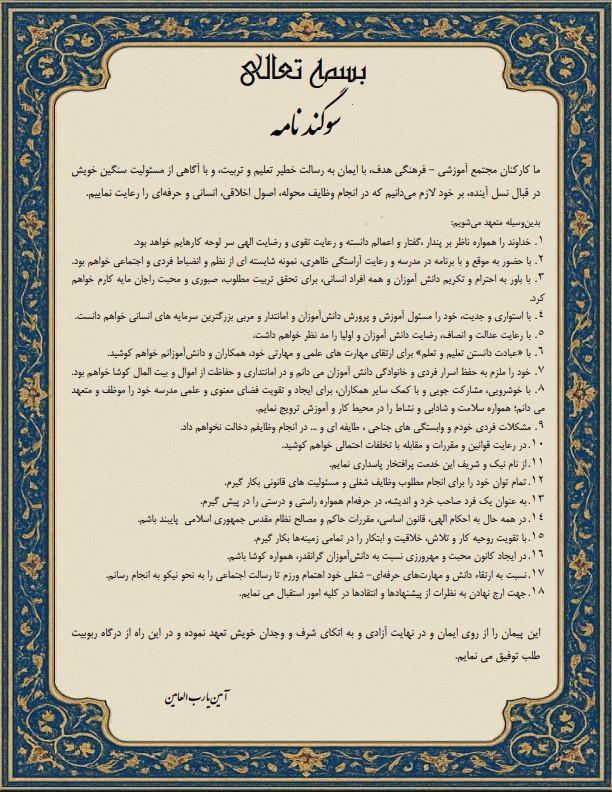 بسمه تعالی
سوگند نامه
ما کارکنان مجتمع آموزشی - فرهنگی هدف، با ایمان به رسالت خطیر تعلیم و تربیت، و با آگاهی از مسئولیت سنگین خویش
در قبال نسل آینده، بر خود لازم می‌دانیم که در انجام وظایف محوله، اصول اخلاقی، انسانی و حرفه‌ای را رعایت نماییم.
بدین‌وسیله متعهد می‌شویم:
۱. خداوند را همواره ناظر بر پندار ،گفتار و اعمالم دانسته و رعایت تقوی و رضایت الهی سر لوحه کارهایم خواهد بود.
۲. با حضور به موقع و با برنامه در مدرسه و رعایت آراستگی ظاهری، نمونه شایسته ای از نظم و انضباط فردی و اجتماعی خواهم بود.
۳. با باور به احترام و تکریم دانش آموزان و همه افراد انسانی، برای تحقق تربیت مطلوب، صبوری و محبت راجان مایه کارم خواهم
کرد.
٤. با استواری و جدیت، خود را مسئول آموزش و پرورش دانش‌آموزان و امانتدار و مربی بزرگترین سرمایه های انسانی خواهم دانست.
۵. با رعایت عدالت و انصاف، رضایت دانش آموزان و اولیا را مد نظر خواهم داشت.
۶. با «عبادت دانستن تعلیم و تعلم» برای ارتقای مهارت های علمی و مهارتی خود، همکاران و دانش‌آموزانم خواهم کوشید.
۷. خود را ملزم به حفظ اسرار فردی و خانوادگی دانش آموزان می دانم و در امانتداری و حفاظت از اموال و بیت المال کوشا خواهم بود.
۸. با خوشرویی، مشارکت جویی و با کمک سایر همکاران، برای ایجاد و تقویت فضای معنوی و علمی مدرسه خود را موظف و متعهد
می دانم؛ همواره سلامت و شادابی و نشاط را در محیط کار و آموزش ترویج نمایم.
۹. مشکلات فردی خودم و وابستگی های جناحی ، طایفه ای و ... در انجام وظایفم دخالت نخواهم داد.
۱۰.در رعایت قوانین و مقررات و مقابله با تخلفات احتمالی خواهم کوشید.
۱۱.از نام نیک و شریف این خدمت پرافتخار پاسداری نمایم.
۱۲.تمام توان خود را برای انجام مطلوب وظایف شغلی و مسئولیت های قانونی بکار گیرم.
۱۳.به عنوان یک فرد صاحب خرد و اندیشه، در حرفه‌ام همواره راستی و درستی را در پیش گیرم.
۱٤.در همه حال به احکام الهی، قانون اساسی، مقررات حاکم و مصالح نظام مقدس جمهوری اسلامی پایبند باشم.
۱۵.با تقویت روحیه کار و تلاش، خلاقیت و ابتکار را در تمامی زمینه‌ها بکار گیرم.
۱۶.در ایجاد کانون محبت و مهرورزی نسبت به دانش‌آموزان گرانقدر، همواره کوشا باشم.
۱۷.نسبت به ارتقاء دانش و مهارت‌های حرفه‌ای- شغلی خود اهتمام ورزم تا رسالت اجتماعی را به نحو نیکو به انجام رسانم.
۱۸.جهت ارج نهادن به نظرات از پیشنهادها و انتقادها در کلیه امور استقبال می نمایم.
این پیمان را از روی ایمان و در نهایت آزادی و به اتکای شرف و وجدان خویش تعهد نموده و در این راه از درگاه ربوبیت
طلب توفیق می نمایم.
آمین یا رب العامین